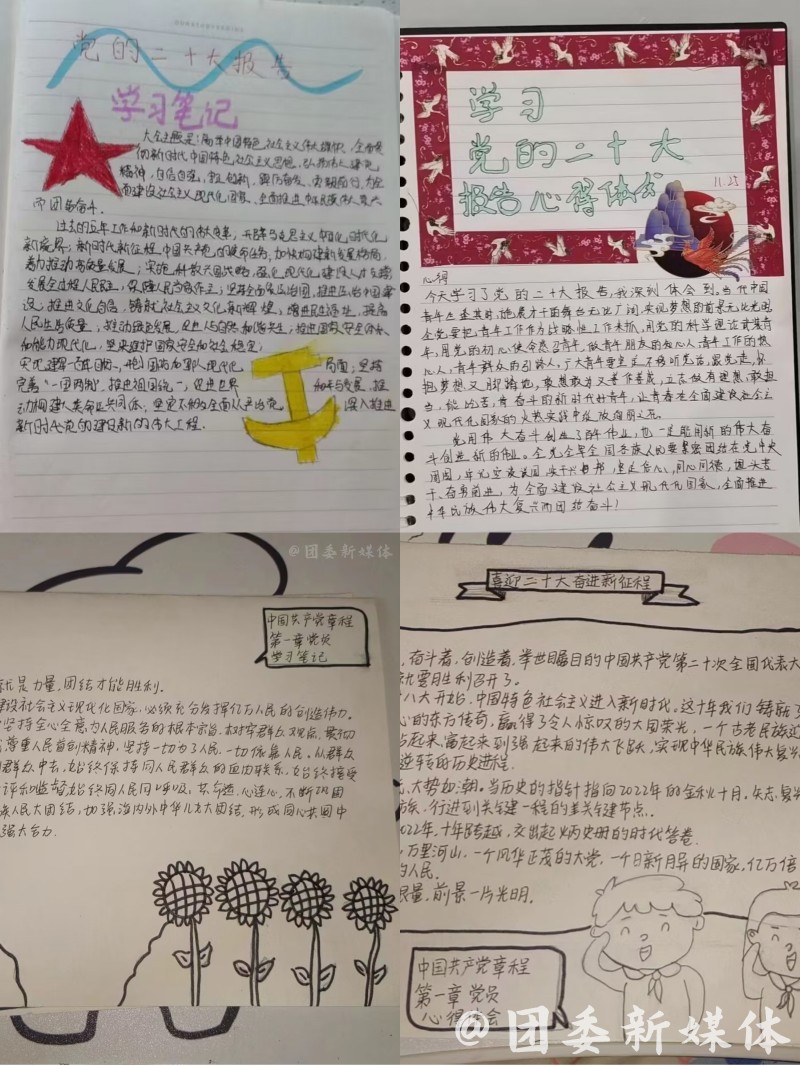 党的二十大报告
学习笔记
大会主题是：高举中国特色社会主义伟大旗帜，全面贯
彻新时代中国特色社会主义思想，弘扬伟大建党
精神，自信自强，守正创新，踔厉奋发，勇毅前行，为全
面建设社会主义现代化国家、全面推进中华民族伟大复兴
而团结奋斗．
过去的五年工作和新时代的伟大变革，开辟马克思主义中国化时代化
新境界；新时代新征程中国共产党的使命任务，加快构建新发展格局，
着力推动高质量发展；实施科教兴国战略，强化现代化建设人才支撑；
发展全过程人民民主，保障人民当家作主；坚持全面依法治国，推进法治中国建
设，推进文化自信，铸就社会主义文化新辉煌，增进民生福祉，提高
人民生活质量，推动绿色发展，促进人与自然和谐共生；推进国家安全体系
和能力现代化，坚决维护国家安全和社会稳定；
实现建军一百年目标，开创国防和军队现代化 局面；坚持
完善“一国两制”，推进祖国统一，促进世界 和平与发展，推
动构建人类命运共同体；坚定不移全面从严治党 深入推进
新时代党的建设新的伟大工程．
学习
党的二十大
报告心得体会
11.25
心得
今天学习了党的二十大报告，我深刻体会到，当代中国
青年生逢其时，施展才干的舞台无比广阔，实现梦想的前景无比光明
全党要把青年工作作为战略性工作来抓，用党的科学理论武装青
年，用党的初心使命感召青年，做青年朋友的知心人，青年工作的热
心人，青年群众的引路人，广大青年要坚定不移听党话、跟党走，怀
抱梦想又脚踏实地，敢想敢为又善作善成，立志做有理想、敢担
当、能吃苦、肯奋斗的新时代好青年，让青春在全面建设社会主
义现代化国家的火热实践中绽放绚丽之花．
党用伟大奋斗创造了百年伟业，也一定能用新的伟大奋
斗创造新的伟业。全党全军全国各族人民要紧密团结在党中央
周围，牢记空谈误国、实干兴邦，坚定信心、同心同德，埋头苦
干、奋勇前进，为全面建设社会主义现代化国家、全面推进
中华民族伟大复兴而团结奋斗！
@团委新媒体
中国共产党章程
第一章党员
学习笔记
就是力量，团结才能胜利．
建设社会主义现代化国家，必须充分发挥亿万人民的创造伟力．
坚持全心全意为人民服务的根本宗旨，树牢群众观点，贯彻
尊重人民首创精神，坚持一切为了人民，一切依靠人民，从群众
群众中去，始终保持同人民群众的血肉联系，始终接受
评和监督，始终同人民同呼吸、共命运、心连心，不断巩固
族人民大团结，加强海内外中华儿女大团结，形成同心共圆中
强大合力．
喜迎二十大奋进新征程
，奋斗着，创造着，举世瞩目的中国共产党第二十次全国代表大
就要胜利召开了。
十八大开始，中国特色社会主义进入新时代。这十年我们铸就了
心的东方传奇，赢得了令人惊叹的大国荣光，一个古老民族迎
站起来、富起来到强起来的伟大飞跃，实现中华民族伟大复兴
逆转的历史进程．
，大势如潮。当历史的指针指向2022年的金秋十月，矢志复兴
族，行进到关键一程的关键节点．
2022年，十年跨越，交出彪炳史册的时代答卷．
，万里河山，一个风华正茂的大党，一个日新月异的国家，亿万倍
的人民．
限量，前景一片光明．
中国共产党章程
第一章党员
心得体会
@团委新媒体